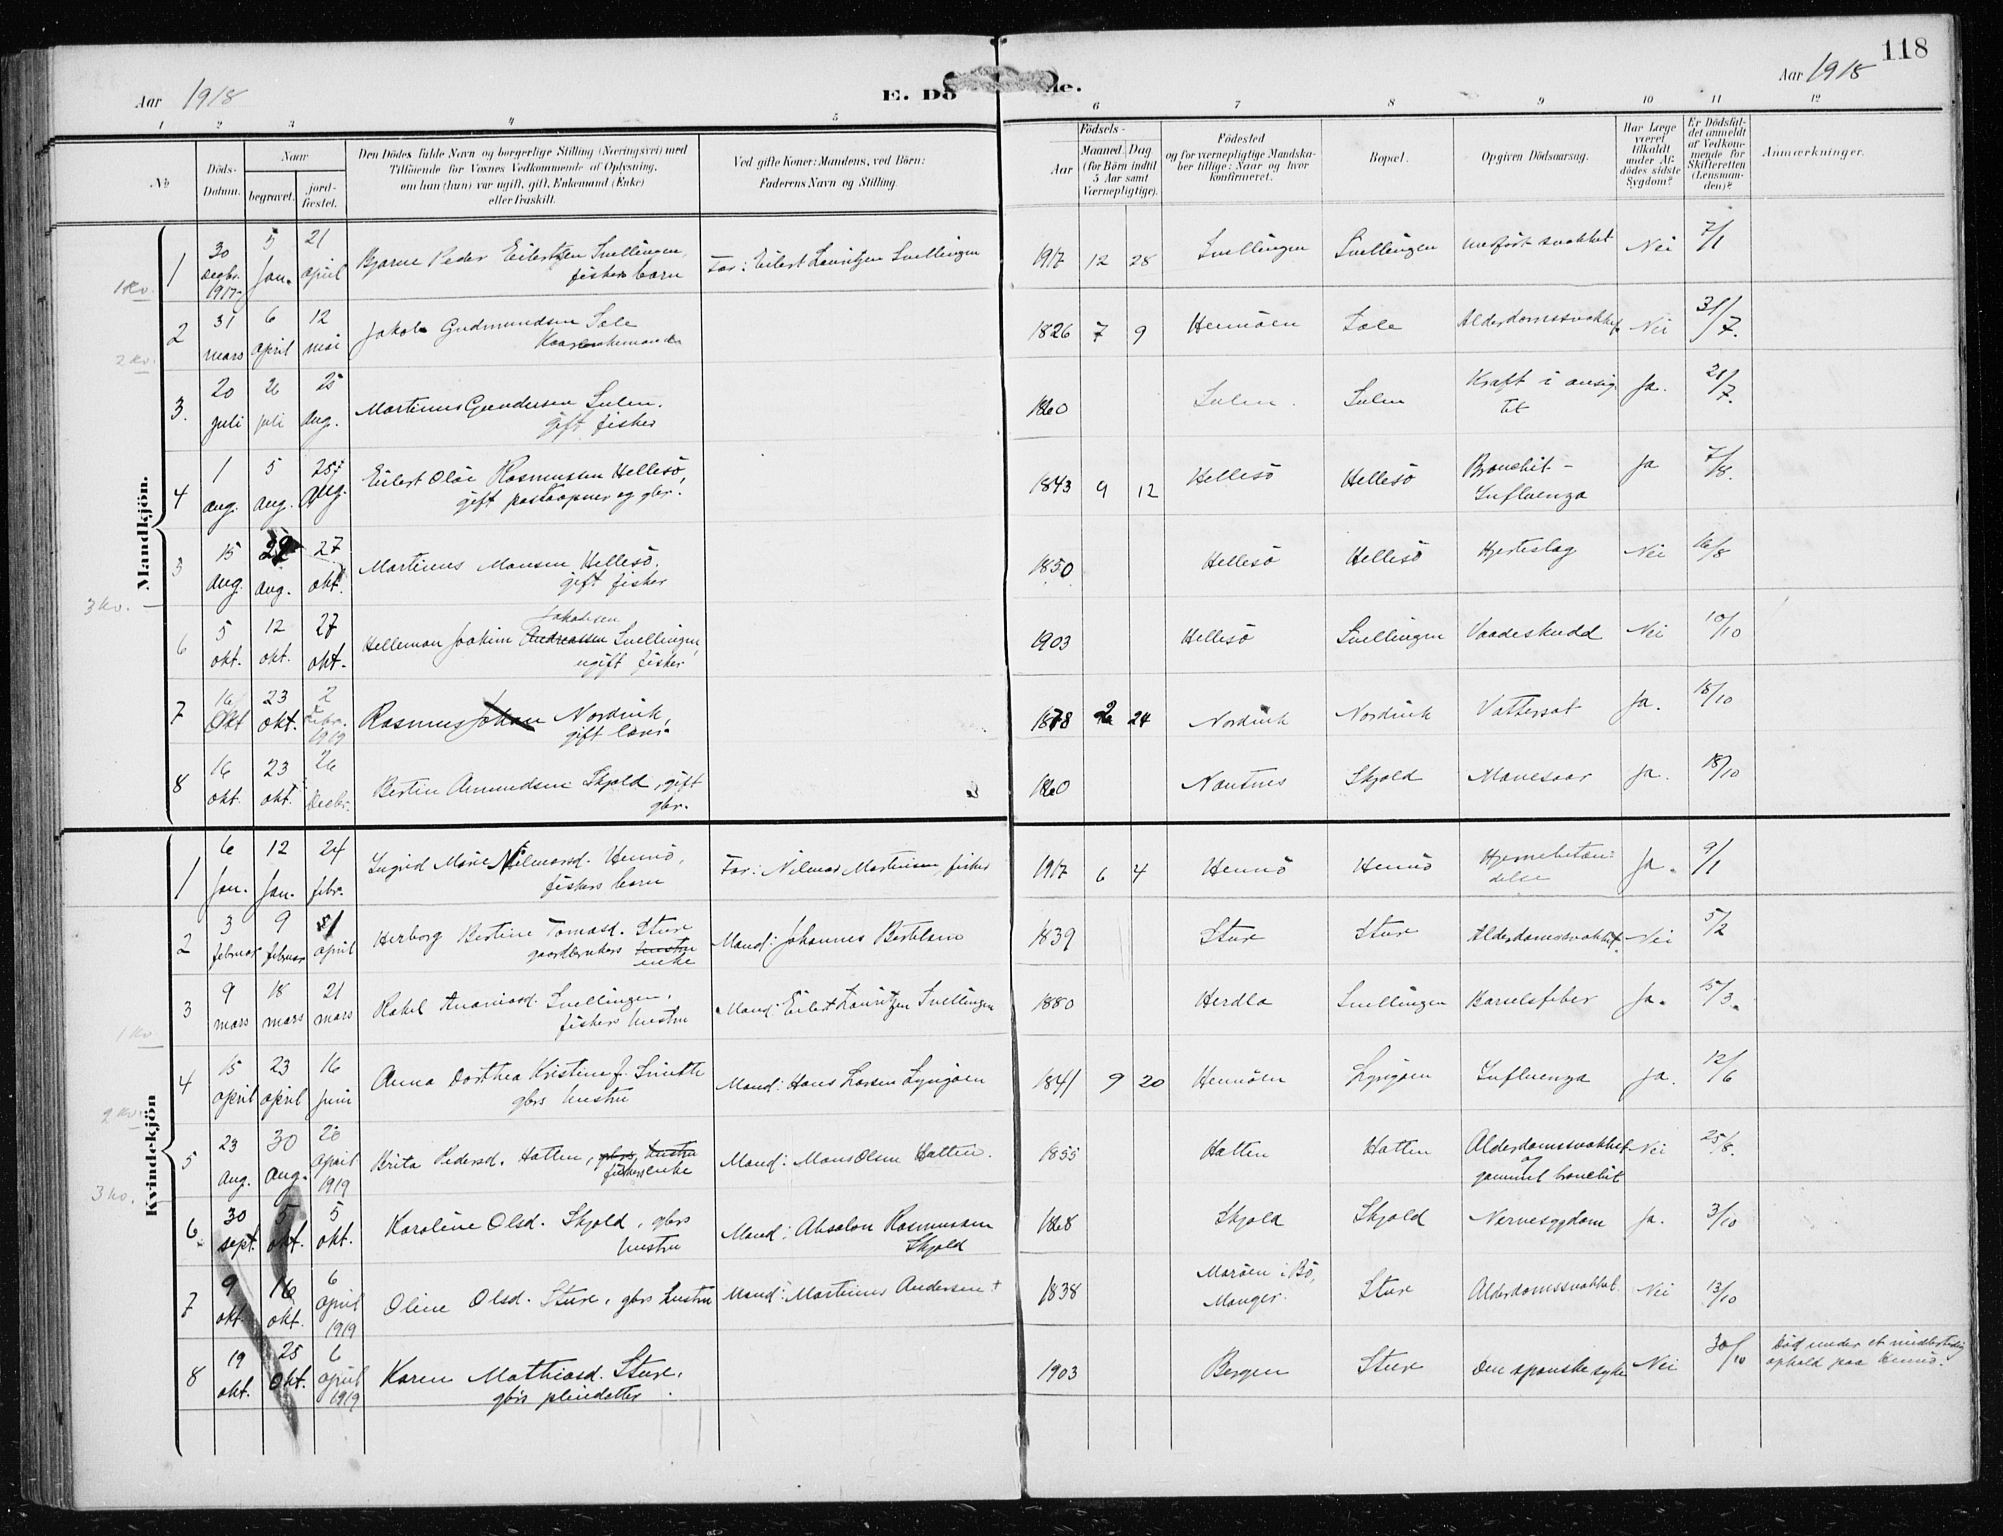 118
Aar 1918
E. Dö
de.
Aar 1918
1 2 3 4 5 6 7 8 9 10 11 12
No
Döds-Datum.
Naar
begravet.
jord-fæstet.
Den Dödes fulde Navn og borgerlige Stilling (Næringsvei) med
Tilföiende for Voxnes Vedkommende af Oplysning,
om han (hun) var ugift, gift, Enkemand (Enke)
eller fraskilt.
Ved gifte Koner: Mandens, ved Börn:
Faderens Navn og Stilling.
Födsels-
Aar
Maaned Dag
(for Börn indtil
5 Aar samt
Værnepligtige).
Födested
og for værnepligtige Mandska-
ber tillige: Naar og hvor
konfirmeret.
Bopæl.
Opgiven Dödsaarsag.
Har Læge
været
tilkaldt
under Af-
dödes sidste
Sygdom?
Er Dödsfal-
det anmeldt
af Vedkom-
mende for
Skifteretten
(Lensman-
den)?
Anmærkninger.
Mandkjön.
1 30 decbr. 1917 5 Jan. 21 april Bjarne Peder Eilertsen Snellingen, fiskers barn Far: Eilert Lauritzen Snellingen 1917 12 28 Snellingen Snellingen medfødt svakhet Nei 7/1
1 kv.
2 31 mars 6 april 12 mai Jakob Gudmundsen Sæle 1826 7 9 Hennöen Sæle Alderdomssvakhet Nei 31/7.
2 kv.
3. 20 juli 26 juli 25 aug. Martinus Gundersen Sulen. gift fisker 1860 Sulen. Sulen Kræft i ansigtet Ja. 21/7.
4 1 aug. 5 aug. 25 aug. Eilert Olai Rasmussen Hellesö, gift postaapner og gbr. 1843 9 12 Hellesö Hellesö Bronchit - Influenza Ja 7/8.
5 15 aug. 22 aug. 27 okt. Martinus Monsen Hellesö, gift fisker 1850 Hellesö Hellesö Hjerteslag Nei 16/8
3 kv.
6 5 okt. 12 okt. 27 okt. Helleman Joakim Andreassen Jakobsen Snellingen, ugift fisker 1903 Hellesö Snellingen Vaadeskudd Nei 10/10
7 16 Okt 23 okt. 2 febr. 1919 Rasmus Johan Nordvik, gift 1878 2 24 Nordvik Nordvik Vattersot Ja. 18/10
8 16 okt. 23 okt. 26 Decbr. Bertin Amundsen Skjold, gift gbr. 1860 Nautnes Skjold Mavesaar Ja. 18/10
Kvindekjön
1 6 Jan. 12 Jan. 24 febr. Ingrid Marie Nilmarsd. Hennö, fiskers barn Far: Nilmar Martinsen, fisker 1917 6 4 Hennö Hennö Hjernebetændelse Ja. 9/1
2 3 februar 9 februar april Herborg Bertine Tomasd. Sture gaardbrukers hustru enke Mand: Johannes Bertelsen 1839 Sture Sture Alderdomssvakhet Nei 5/2
3 9 mars 18 mars 21 mars Rakel Ananiasd. Snellingen, fiskers hustru Mand: Eilert Lauritzen Snellingen 1880 Herdla Snellingen Barselsfeber Ja. 15/3.
1 kv
4 15 april 23 april 16 juni Anna Dorthea Kristine f. Smith gbrs hustru Mand: Hans Larsen Lyngöen 1841 9 20 Hennöen Lyngöen Influenza Ja. 12/6
2 kv.
5 23 aug. 30 aug. 20 april 1919 Brita Pedersd. Hatten, gbrs hustru fiskers enke Mand: Mons Olsen Hatten. 1855 Hatten Hatten Alderdomssvakhet og gammel bronchit Nei 25/8.
3 kv.
6. 30 sept. 5 okt. 5 okt. Karoline Olsd. Skjold, gbrs hustru Mand: Absalon Rasmussen Skjold 1868 Skjold Skjold Nervesygdom Ja. 3/10
7 9 okt. 16 okt. 6 april 1919 Oline Olsd. Sture, gbrs hustru Mand: Martinus Andersen + 1838 Maröen i Bö, Manger. Sture Alderdomssvakhet. Nei 13/10
8 19 okt. 25 Okt. 6 april 1919 Karen Mathiasd. Sture, gbrs pleiedatter 1903 Bergen Sture Den spanske syke Nei 30/10 Död under et midlertidig ophold paa Hennö.